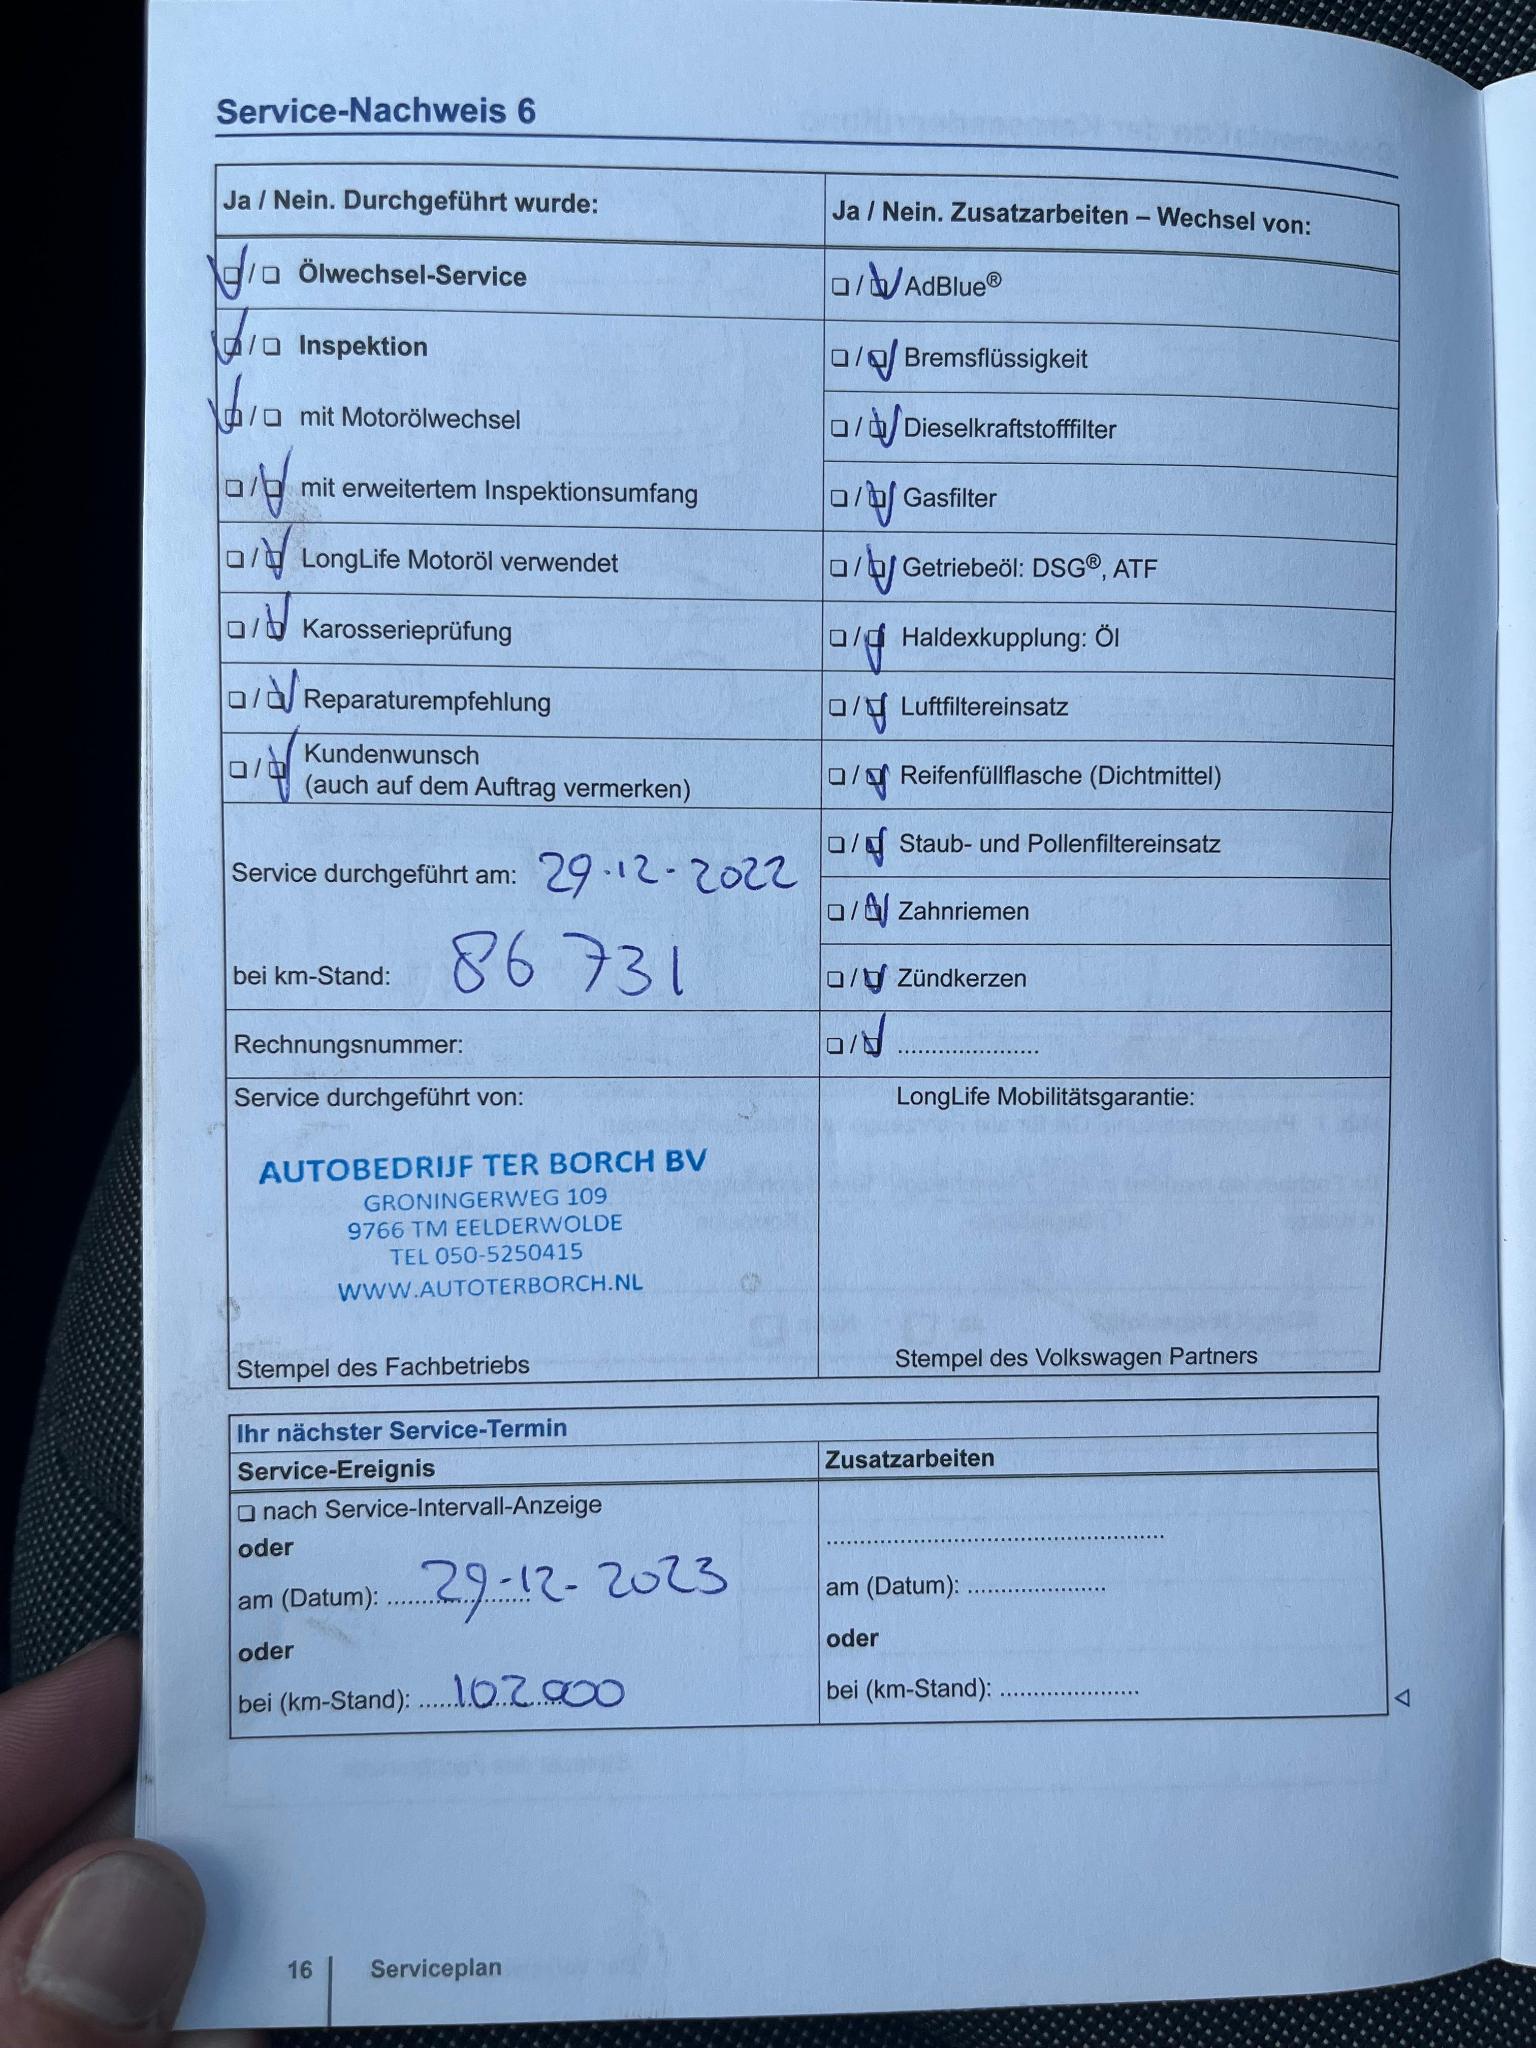 Service-Nachweis 6
Ja / Nein. Durchgeführt wurde:
☑ / ☐ Ölwechsel-Service
☑ / ☐ Inspektion
☑ / ☐ mit Motorölwechsel
☐ / ☑ mit erweitertem Inspektionsumfang
☐ / ☑ LongLife Motoröl verwendet
☐ / ☑ Karosserieprüfung
☐ / ☑ Reparaturempfehlung
☐ / ☑ Kundenwunsch
(auch auf dem Auftrag vermerken)
Service durchgeführt am: 29-12-2022
bei km-Stand: 86 731
Rechnungsnummer:
Service durchgeführt von:
AUTOBEDRIJF TER BORCH BV
GRONINGERWEG 109
9766 TM EELDERWOLDE
TEL 050-5250415
WWW.AUTOTERBORCH.NL
Stempel des Fachbetriebs
Ja / Nein. Zusatzarbeiten – Wechsel von:
☐ / ☑ AdBlue®
☐ / ☑ Bremsflüssigkeit
☐ / ☑ Dieselkraftstofffilter
☐ / ☑ Gasfilter
☐ / ☑ Getriebeöl: DSG®, ATF
☐ / ☑ Haldexkupplung: Öl
☐ / ☑ Luftfiltereinsatz
☐ / ☑ Reifenfüllflasche (Dichtmittel)
☐ / ☑ Staub- und Pollenfiltereinsatz
☐ / ☑ Zahnriemen
☐ / ☑ Zündkerzen
☐ / ☑ .....................
LongLife Mobilitätsgarantie:
Stempel des Volkswagen Partners
Ihr nächster Service-Termin
Service-Ereignis
☐ nach Service-Intervall-Anzeige
oder
am (Datum): 29-12-2023
oder
bei (km-Stand): 102000
Zusatzarbeiten
..................................................
am (Datum): .....................
oder
bei (km-Stand): .....................
16 Serviceplan